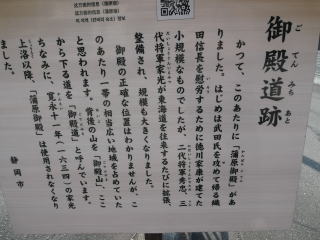 御殿道跡
ご てん みち あと
かつて、このあたりに「蒲原御殿」があ
りました。はじめは武田氏を攻めて帰る織
田信長を慰労するために徳川家康が建てた
小規模なものでしたが、二代将軍秀忠、三
代将軍家光が東海道を往来するたびに拡張、
整備され、規模も大きくなりました。
御殿の正確な位置はわかりませんが、こ
のあたり一帯の相当広い地域を占めていた
と思われます。背後の山を「御殿山」、ここ
から下る道を「御殿道」と呼んでいます。
ちなみに、寛永十一年(一六三四)の家光
上洛以降、「蒲原御殿」は使用されなくなり
ました。
静岡市